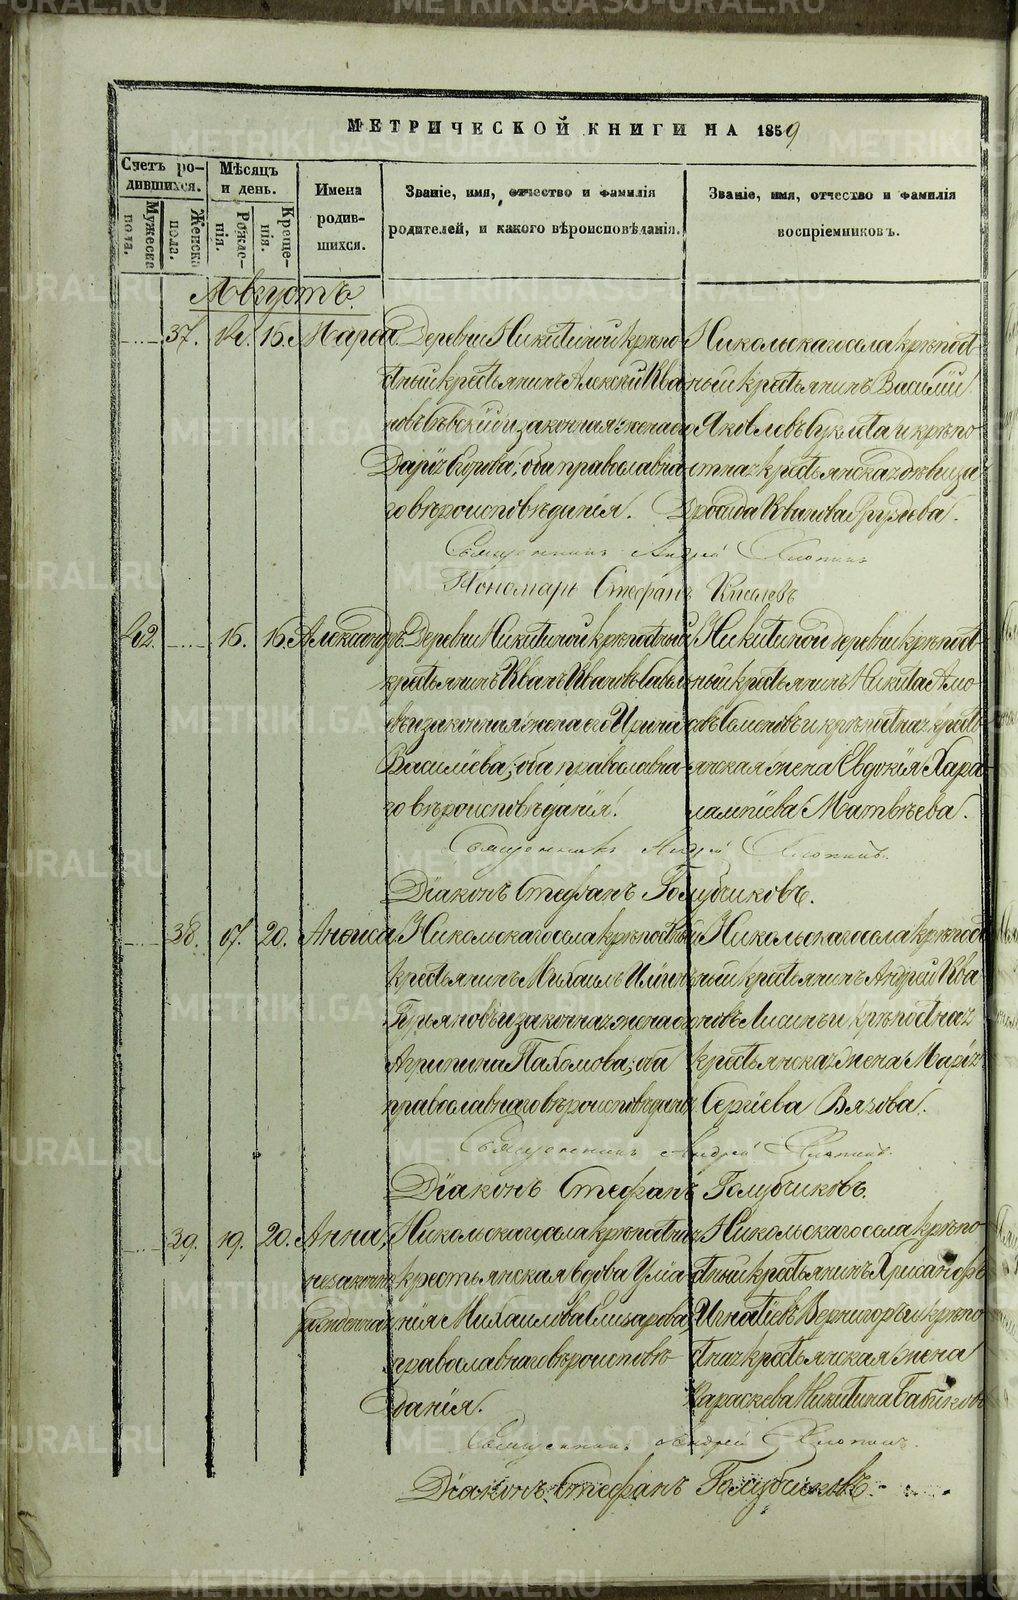 МЕТРИЧЕСКОЙ КНИГИ НА 1859
Счетъ ро-
дившихся.
Мужеска
пола.
Женска
пола.
Мѣсяцъ
и день.
Рожде-
нія.
Креще-
нія.
Имена
родив-
шихся.
Званіе, имя, отчество и фамилія
родителей, и какого вѣроисповѣданія.
Званіе, имя, отчество и фамилія
воспріемниковъ.
Августъ.
37. 15. Марѳа.
Деревни Никитиной крѣпо
стный крестьянинъ Алексій Ива
новъ и законная жена его
Дарія; оба православна
го вѣроисповѣданія.
Никольскаго села крѣпост
ный крестьянинъ Василій
Яковлевъ и крѣпо
стная крестьянская дѣвица
Иванова Груздева.
Священникъ Андрей
Пономарь Стефанъ Киселевъ
42. 16. 16. Александръ.
Деревни Никитиной крѣпостный
крестьянинъ Иванъ Ивановъ
и законная жена его Ирина
Василіева; оба православна
го вѣроисповѣданія.
Никитиной деревни крѣпост
ный крестьянинъ Никита Амо
совъ Семеновъ и крѣпостная кресть
янская жена Евдокія Хара
лампіева Матвѣева.
Священникъ Андрей
Діаконъ Стефанъ Голубчиковъ.
38. 17. 20. Анѳиса.
Никольскаго села крѣпостный
крестьянинъ Михаилъ Ильинъ
и законная жена его
Агрипина Пахомова; оба
православнаго вѣроисповѣданія
Никольскаго села крѣпост
ный крестьянинъ Андрей Ива
новъ Лисинъ и крѣпостная
крестьянская жена Марія
Сергіева Вязова.
Священникъ Андрей
Діаконъ Стефанъ Голубчиковъ.
39. 19. 20. Анна,
незаконно
рожденная
Никольскаго села крѣпостная
крестьянская вдова Улiа
нія Михаилова Елизарова,
православнаго вѣроисповѣ
данія.
Никольскаго села крѣпо
стный крестьянинъ Хрисанфъ
Игнатіевъ Вернигоръ и крѣпо
стная крестьянская жена
Параскева Никитина
Священникъ Андрей
Діаконъ Стефанъ Голубчиковъ.
METRIKI.GASO-URAL.RU